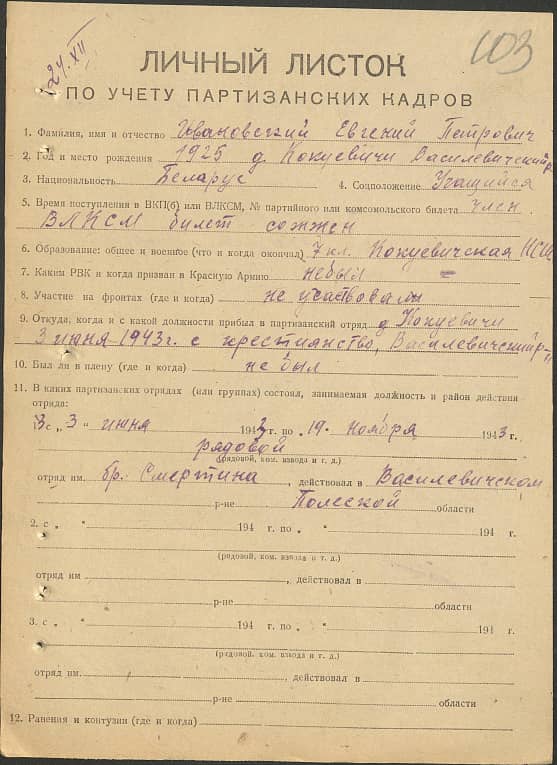 24.XII
103
ЛИЧНЫЙ ЛИСТОК
ПО УЧЕТУ ПАРТИЗАНСКИХ КАДРОВ
1. Фамилия, имя и отчество Ивановский Евгений Петрович
2. Год и место рождения 1925 д. Кокуевичи Василевичский р-
3. Национальность Беларус 4. Соцположение Учащийся
5. Время поступления в ВКП(б) или ВЛКСМ, № партийного или комсомольского билета член
ВЛКСМ билет сожжен
6. Образование: общее и военное (что и когда окончал) 7 кл. Кокуевичская НСШ
7. Каким РВК и когда призван в Красную Армию небыл
8. Участие на фронтах (где и когда) не участвовал
9. Откуда, когда и с какой должности прибыл в партизанский отряд д. Кокуевичи
3 июня 1943 г. с крестианство, Василевичский р-н
10. Был ли в плену (где и когда) не был
11. В каких партизанских отрядах (или группах) состоял, занимаемая должность и район действия
отряда:
1. с „ 3 “ июня 1943 г. по „ 19 “ ноября 1943 г.
рядовой
(рядовой, ком. взвода и т. д.)
отряд им. бр. Смертина, действовал в Василевичском
р-не Полесской области
2. с „ “ 194 г. по „ “ 194 г.
(рядовой, ком. взвода и т. д.)
отряд им , действовал в
р-не области
3. с „ “ 194 г. по „ “ 194 г.
(рядовой, ком. взвода и т. д.)
отряд им. , действовал в
р-не области
12. Ранения и контузии (где и когда)